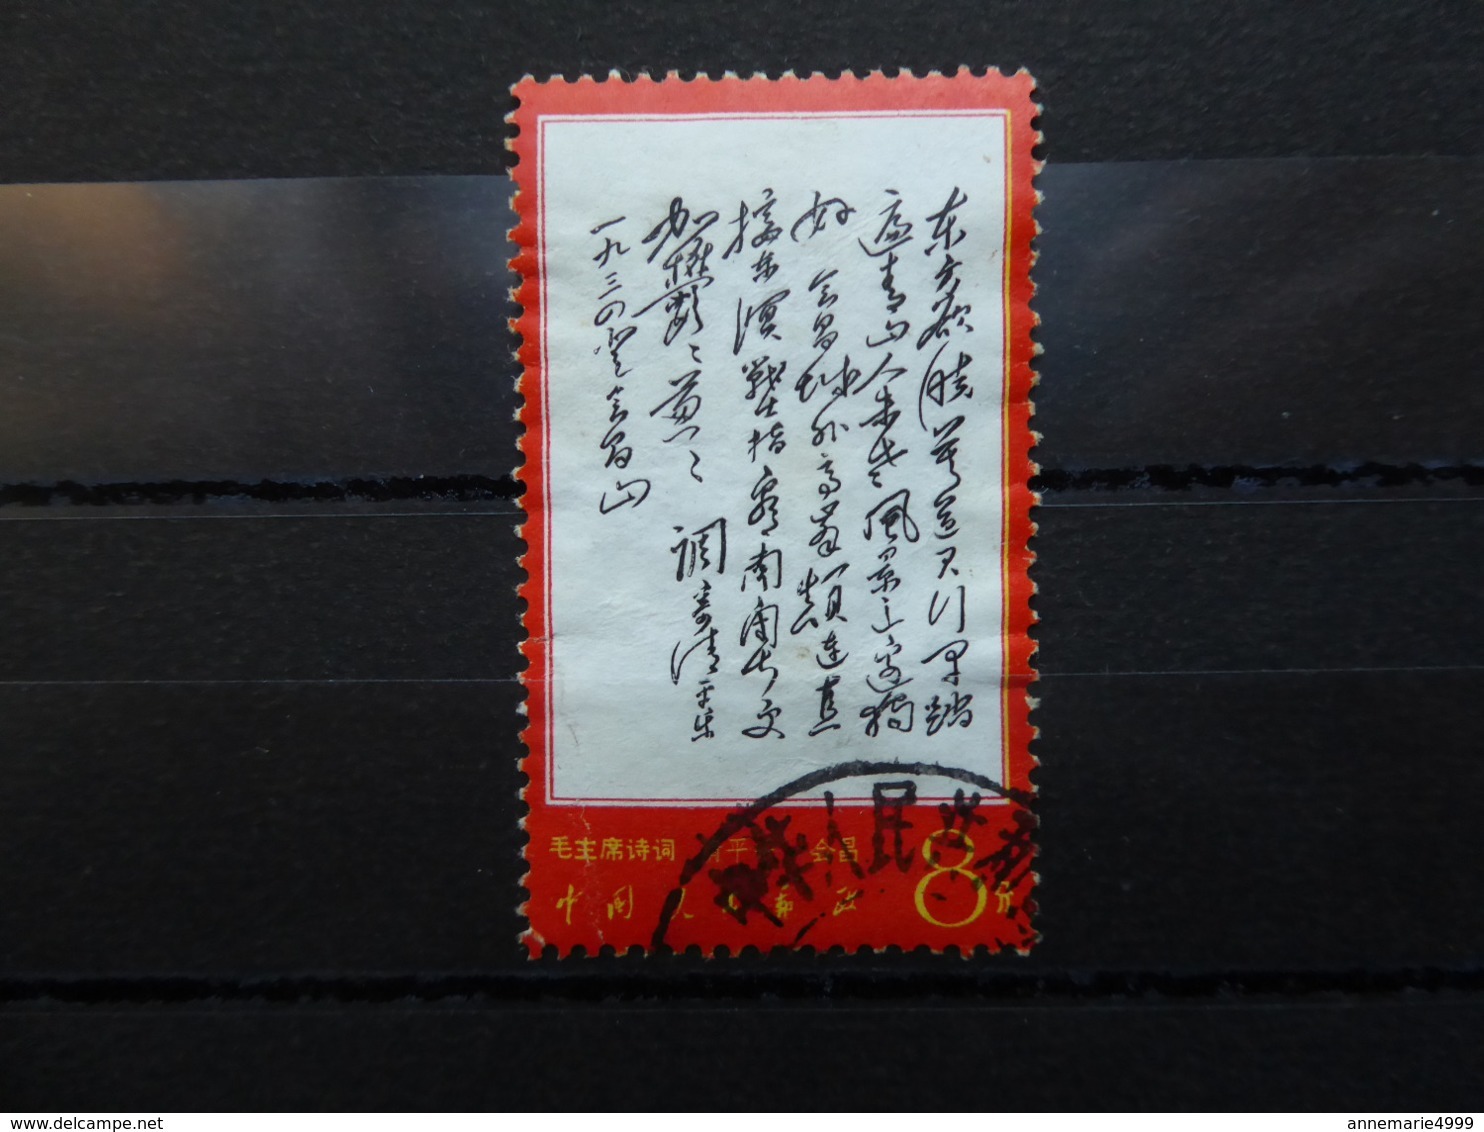 东方欲晓莫道君行早踏
遍青山人未老风景这边独
好 会昌城外高峰颠连直
接东溟战士指看南粤更
加郁郁葱葱 调寄清平乐
一九三四登会昌山
毛主席诗词 清平乐 会昌
中国人民邮政 8分
人民
delcampe.net
annemarie4999